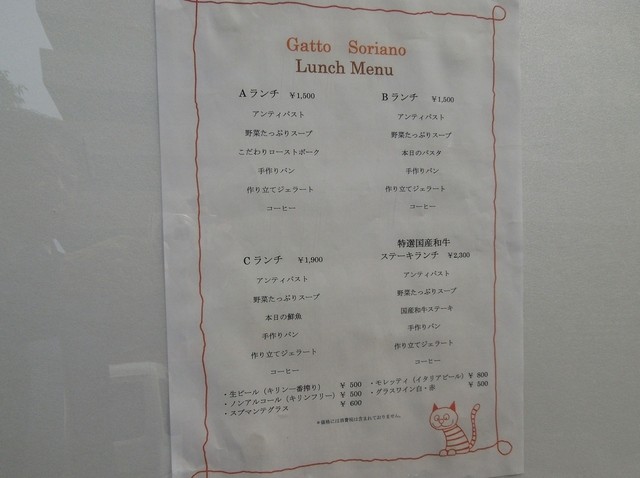 Gatto Soriano
Lunch Menu
Aランチ ￥1,500
アンティパスト
野菜たっぷりスープ
こだわりローストポーク
手作りパン
作り立てジェラート
コーヒー
Bランチ ￥1,500
アンティパスト
野菜たっぷりスープ
本日のパスタ
手作りパン
作り立てジェラート
コーヒー
Cランチ ￥1,900
アンティパスト
野菜たっぷりスープ
本日の鮮魚
手作りパン
作り立てジェラート
コーヒー
特選国産和牛
ステーキランチ ￥2,300
アンティパスト
野菜たっぷりスープ
国産和牛ステーキ
手作りパン
作り立てジェラート
コーヒー
・生ビール（キリン一番搾り） ￥ 500
・ノンアルコール（キリンフリー） ￥ 500
・スプマンテグラス ￥ 600
・モレッティ（イタリアビール） ￥ 800
・グラスワイン白・赤 ￥ 500
＊価格には消費税は含まれておりません。